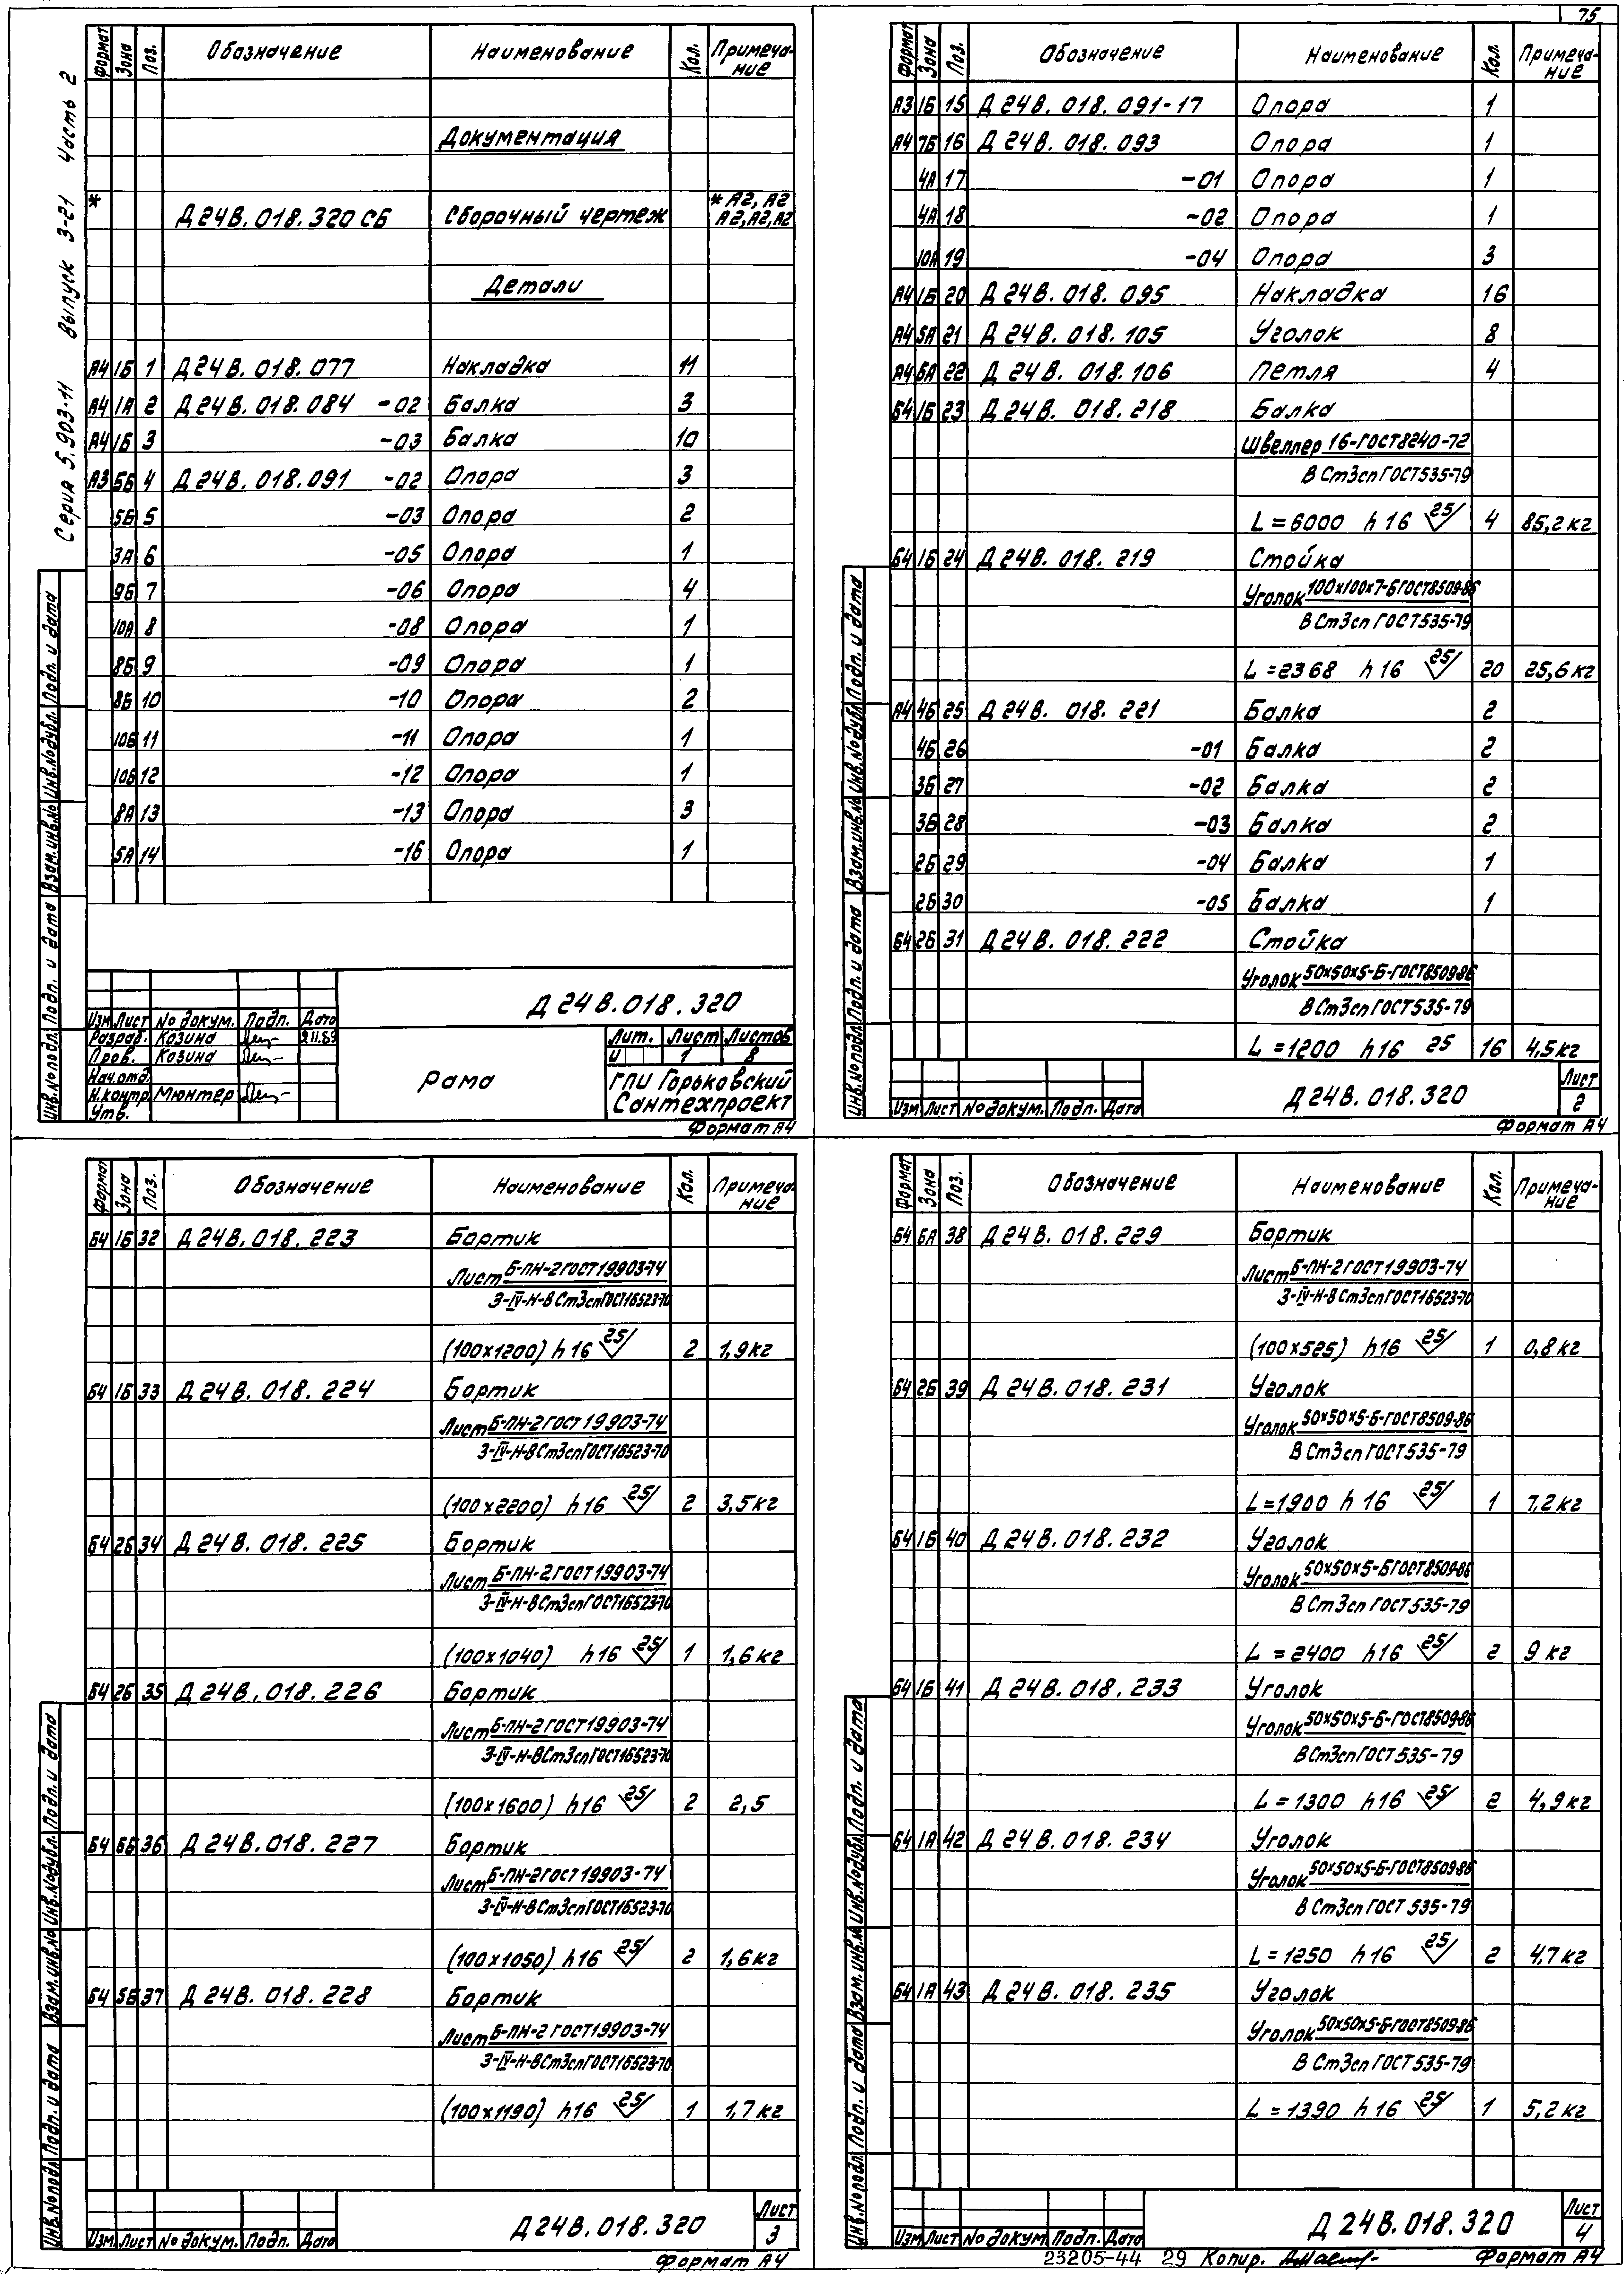 75
Серия 5.903-11 Выпуск 3-21 Часть 2
Формат Зона Поз. Обозначение Наименование Кол. Примеча-
ние
Документация
* Д24В.018.320 СБ Сборочный чертеж * А2, А2
А2, А2, А2
Детали
А4 1Б 1 Д24В.018.077 Накладка 11
А4 1А 2 Д24В.018.084 -02 Балка 3
А4 1Б 3 -03 Балка 10
А3 5Б 4 Д24В.018.091 -02 Опора 3
5Б 5 -03 Опора 2
3А 6 -05 Опора 1
9Б 7 -06 Опора 4
10А 8 -08 Опора 1
8Б 9 -09 Опора 1
8Б 10 -10 Опора 2
10Б 11 -11 Опора 1
10Б 12 -12 Опора 1
8А 13 -13 Опора 3
5А 14 -16 Опора 1
Инв.№подл. Подп. и дата Взам.инв.№ Инв.№дубл. Подп. и дата
Д 24 В.018.320
Изм Лист № докум. Подп. Дата
Разраб. Козина 9.11.89
Пров. Козина
Нач.отд.
Н.контр. Мюнтер
Утв.
Рама
Лит. Лист Листов
И 1 8
ГПИ Горьковский
Сантехпроект
Формат А4
Формат Зона Поз. Обозначение Наименование Кол. Примеча-
ние
А3 1Б 15 Д 24В.018.091-17 Опора 1
А4 7Б 16 Д 24В.018.093 Опора 1
4А 17 -01 Опора 1
4А 18 -02 Опора 1
10А 19 -04 Опора 3
А4 1Б 20 Д 24В.018.095 Накладка 16
А4 5А 21 Д 24В.018.105 Уголок 8
А4 6А 22 Д 24В.018.106 Петля 4
Б4 1Б 23 Д 24В.018.218 Балка
Швеллер 16-ГОСТ8240-72
В Ст3сп ГОСТ535-79
L=6000 h16 25 4 85,2 кг
Б4 1Б 24 Д 24В.018.219 Стойка
Уголок 100х100х7-Б ГОСТ8509-86
В Ст3сп ГОСТ535-79
L=2368 h16 25 20 25,6 кг
А4 4Б 25 Д 24В.018.221 Балка 2
4Б 26 -01 Балка 2
3Б 27 -02 Балка 2
3Б 28 -03 Балка 2
2Б 29 -04 Балка 1
2Б 30 -05 Балка 1
Б4 2Б 31 Д 24В.018.222 Стойка
Уголок 50х50х5-Б-ГОСТ8509-86
В Ст3сп ГОСТ535-79
L=1200 h16 25 16 4,5 кг
Инв.№подл. Подп. и дата Взам.инв.№ Инв.№дубл. Подп. и дата
Изм Лист № докум. Подп. Дата
Д 24В.018.320
Лист
2
Формат А4
Формат Зона Поз. Обозначение Наименование Кол. Примеча-
ние
Б4 1Б 32 Д 24В.018.223 Бортик
Лист Б-ПН-2 ГОСТ19903-74
3-IV-Н-В Ст3сп ГОСТ16523-70
(100х1200) h16 25 2 1,9 кг
Б4 1Б 33 Д 24В.018.224 Бортик
Лист Б-ПН-2 ГОСТ 19903-74
3-IV-Н-В Ст3сп ГОСТ16523-70
(100х2200) h16 25 2 3,5 кг
Б4 2Б 34 Д 24В.018.225 Бортик
Лист Б-ПН-2 ГОСТ19903-74
3-IV-Н-В Ст3сп ГОСТ16523-70
(100х1040) h16 25 1 1,6 кг
Б4 2Б 35 Д 24В.018.226 Бортик
Лист Б-ПН-2 ГОСТ19903-74
3-IV-Н-В Ст3сп ГОСТ16523-70
(100х1600) h16 25 2 2,5
Б4 6Б 36 Д 24В.018.227 Бортик
Лист Б-ПН-2 ГОСТ 19903-74
3-IV-Н-В Ст3сп ГОСТ16523-70
(100х1050) h16 25 2 1,6 кг
Б4 5Б 37 Д 24В.018.228 Бортик
Лист Б-ПН-2 ГОСТ19903-74
3-IV-Н-В Ст3сп ГОСТ16523-70
(100х1190) h16 25 1 1,7 кг
Инв.№подл. Подп. и дата Взам.инв.№ Инв.№дубл. Подп. и дата
Изм. Лист № докум. Подп. Дата
Д 24В.018.320
Лист
3
Формат А4
Формат Зона Поз. Обозначение Наименование Кол. Примеча-
ние
Б4 6А 38 Д 24В.018.229 Бортик
Лист Б-ПН-2 ГОСТ19903-74
3-IV-Н-В Ст3сп ГОСТ16523-70
(100х525) h16 25 1 0,8 кг
Б4 2Б 39 Д 24В.018.231 Уголок
Уголок 50х50х5-Б-ГОСТ8509-86
В Ст3сп ГОСТ 535-79
L=1900 h16 25 1 7,2 кг
Б4 1Б 40 Д 24В.018.232 Уголок
Уголок 50х50х5-Б ГОСТ8509-86
В Ст3сп ГОСТ 535-79
L=2400 h16 25 2 9 кг
Б4 1Б 41 Д 24В.018.233 Уголок
Уголок 50х50х5-Б-ГОСТ8509-86
В Ст3сп ГОСТ 535-79
L=1300 h16 25 2 4,9 кг
Б4 1А 42 Д 24В.018.234 Уголок
Уголок 50х50х5-Б-ГОСТ8509-86
В Ст3сп ГОСТ 535-79
L=1250 h16 25 2 4,7 кг
Б4 1А 43 Д 24В.018.235 Уголок
Уголок 50х50х5-Б-ГОСТ8509-86
В Ст3сп ГОСТ 535-79
L=1390 h16 25 1 5,2 кг
Инв.№подл. Подп. и дата Взам.инв.№ Инв.№дубл. Подп. и дата
Изм Лист № докум. Подп. Дата
Д 24В.018.320
Лист
4
23205-44 29 Копир. Формат А4